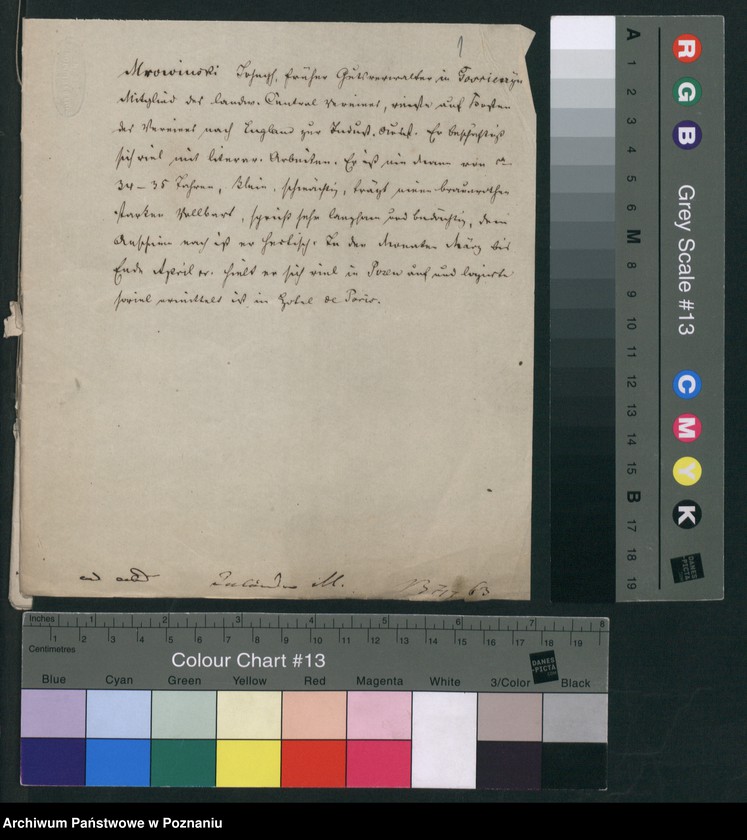 1
Mrowinski Joseph, früher Gutsverwalter in
Mitglied des landw. Central Vereines, reiste auf Kosten
des Vereines nach England zur Indust. Ausst. Er beschäftigt
sich viel mit literar. Arbeiten. Er ist ein Mann von ca.
34–35 Jahren, klein, schmächtig, trägt einen braunrothen
starken Vollbart, spricht sehr langsam und bedächtig, dem
Anschein nach ist er hectisch. In den Monaten März bis
Ende April cr. hielt er sich viel in Posen auf und logirte
soviel ermittelt ist in Hotel de Paris.
ad acta Inländer M. 63
A 1 2 3 4 5 6 M 8 9 10 11 12 13 14 15 B 17 18 19
R G B Grey Scale #13 C M Y K
DANES-PICTA.COM
Inches 1 2 3 4 5 6 7 8
1 2 3 4 5 6 7 8 9 10 11 12 13 14 15 16 17 18 19
Centimetres
Colour Chart #13
DANES-PICTA.COM
Blue Cyan Green Yellow Red Magenta White 3/Color Black
Archiwum Państwowe w Poznaniu